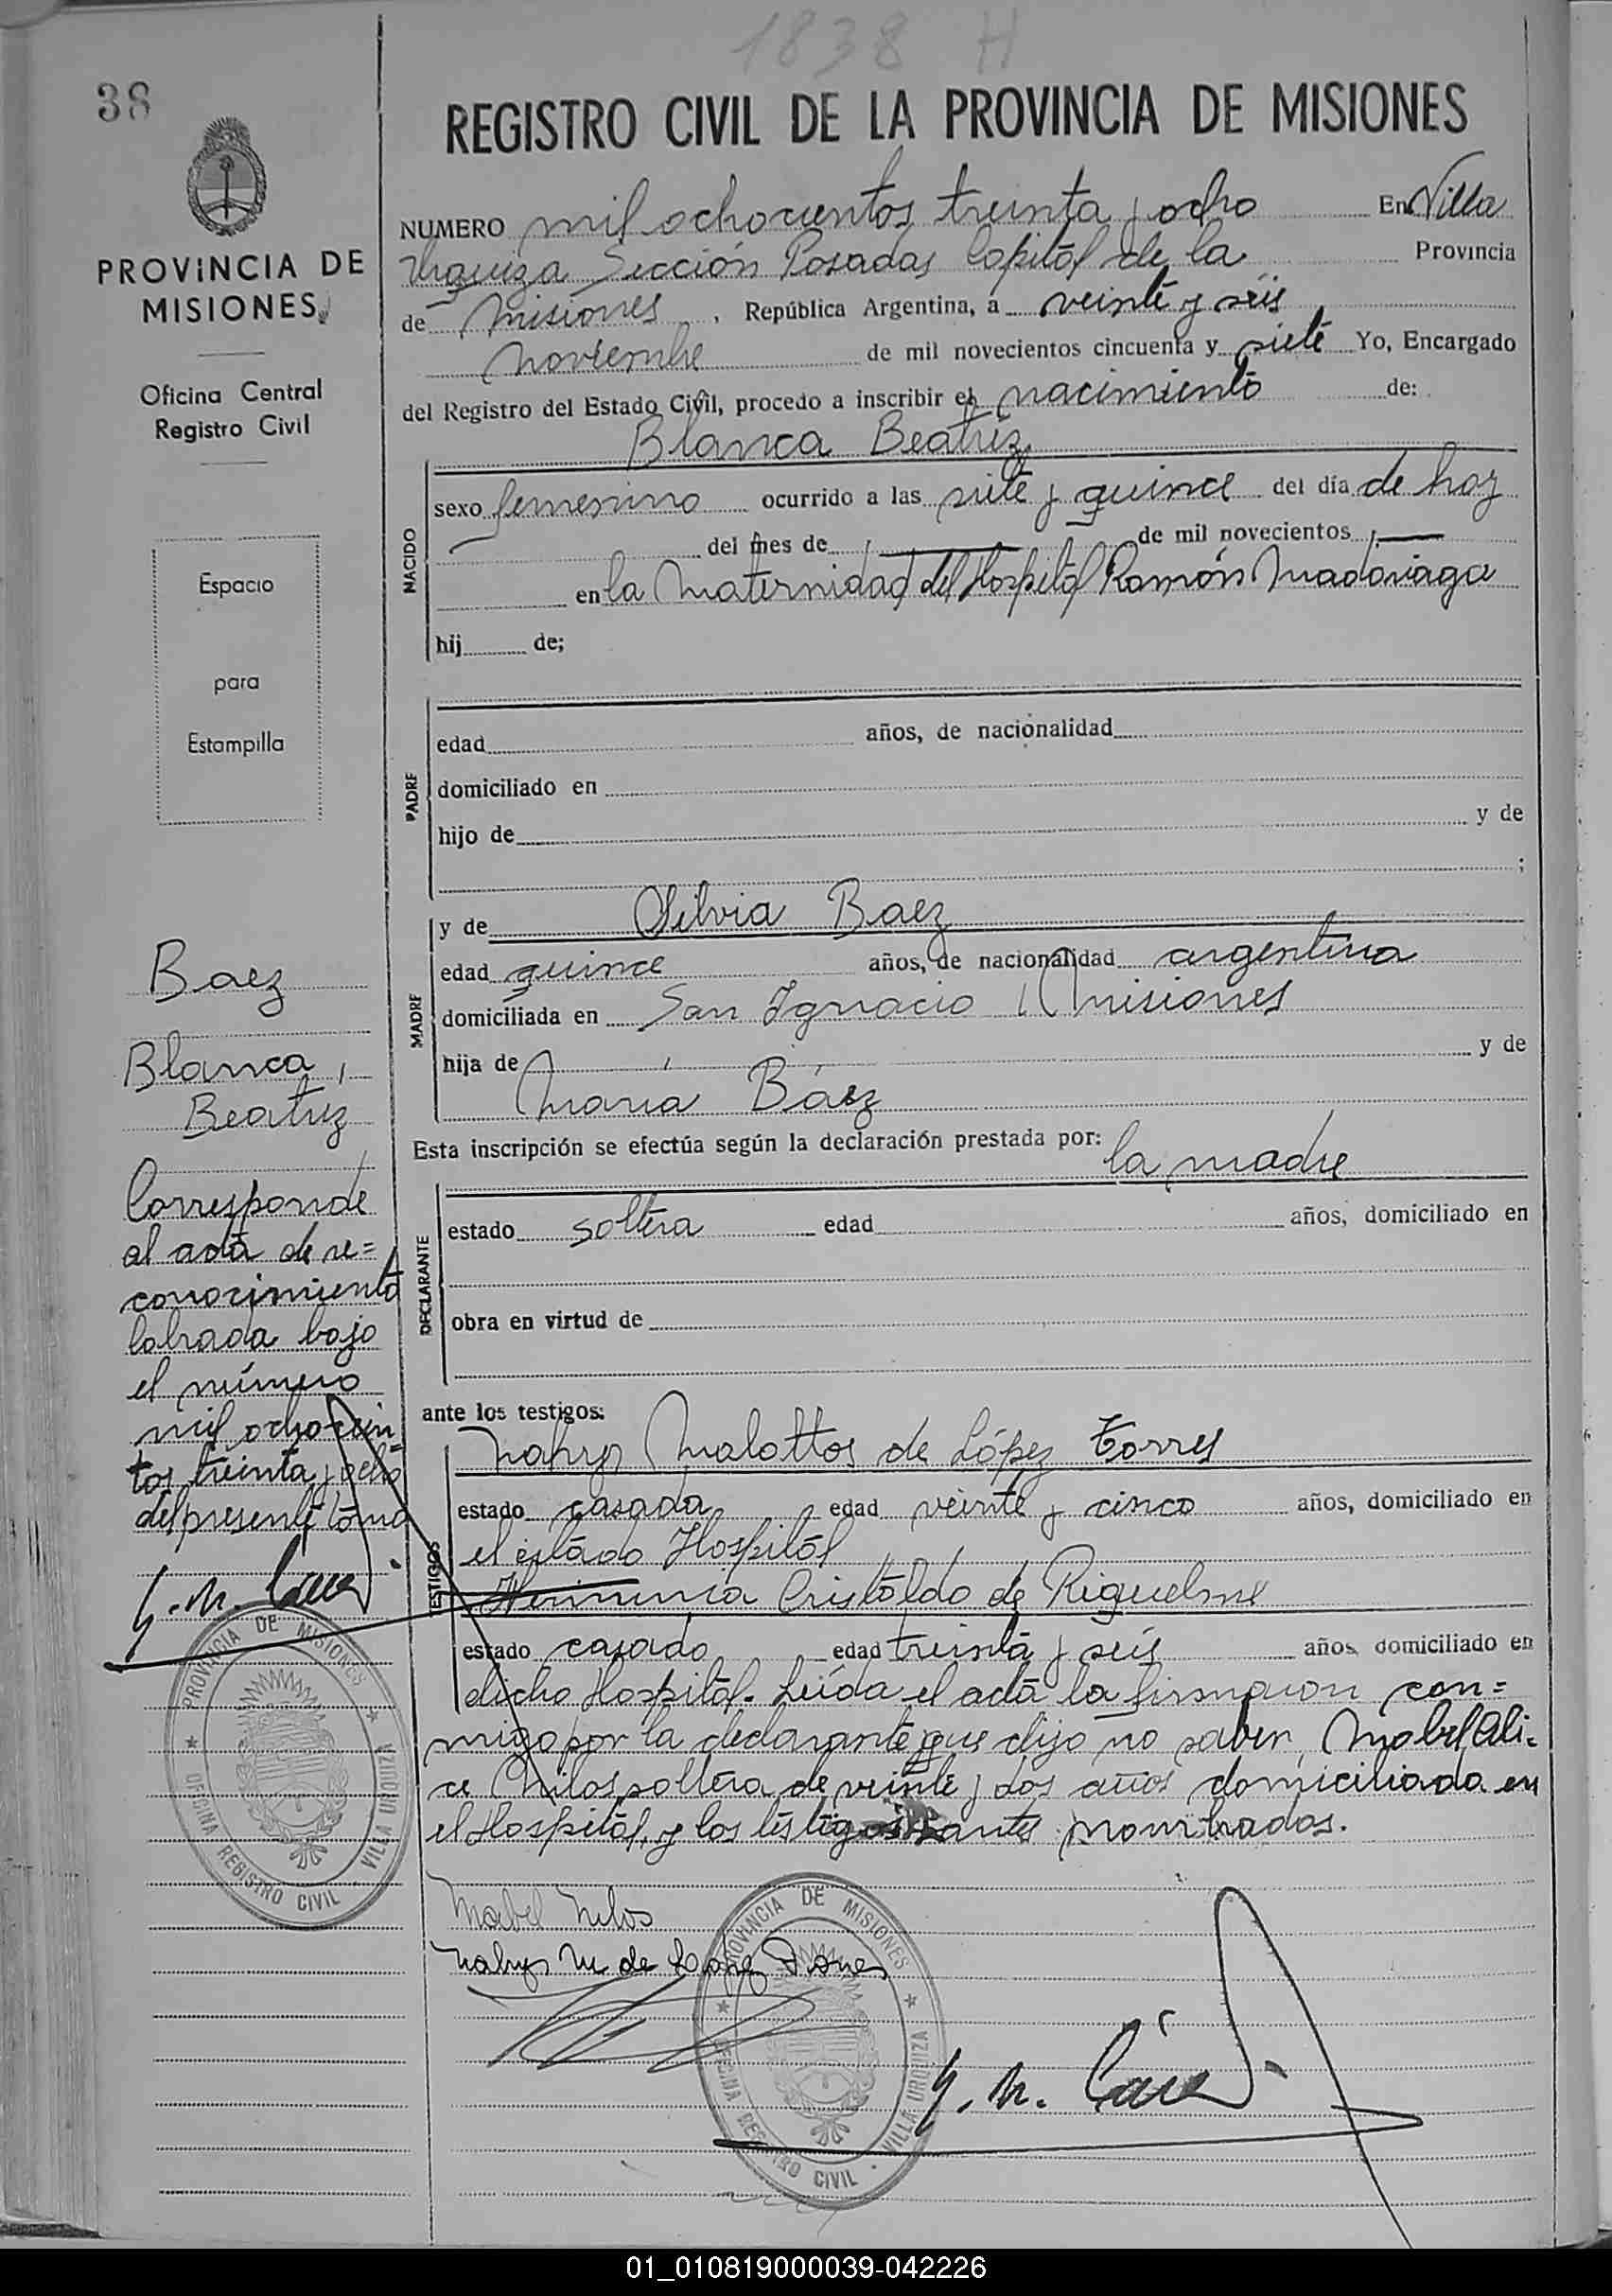 1838 H
38
REGISTRO CIVIL DE LA PROVINCIA DE MISIONES
PROVINCIA DE
MISIONES
Oficina Central
Registro Civil
Espacio
para
Estampilla
NUMERO mil ochocientos treinta y ocho En Villa
Urquiza Sección Posadas Capital de la Provincia
de Misiones, República Argentina, a veinte y seis
Noviembre de mil novecientos cincuenta y siete Yo, Encargado
del Registro del Estado Civil, procedo a inscribir el nacimiento de:
Blanca Beatriz
NACIDO
sexo femenino ocurrido a las siete y quince del día de hoy
del mes de de mil novecientos
en la Maternidad del Hospital Ramón Madariaga
hij de;
PADRE
edad años, de nacionalidad
domiciliado en
hijo de y de
;
MADRE
y de Silvia Baez
edad quince años, de nacionalidad argentina
domiciliada en San Ignacio, Misiones
hija de y de
María Báez
Esta inscripción se efectúa según la declaración prestada por:
la madre
DECLARANTE
estado soltera edad años, domiciliado en
obra en virtud de
ante los testigos:
TESTIGOS
Nahyr Malottos de López Torres
estado casada edad veinte y cinco años, domiciliado en
el citado Hospital
Herminia Cristaldo de Riquelme
estado casado edad treinta y seis años domiciliado en
dicho Hospital. Leída el acta la firmaron con=
migo por la declarante que dijo no saber, Mabel Ali-
ce Milos soltera de veinte y dos años domiciliada en
el Hospital, y los testigos antes nombrados.
Mabel Milos
Nahyr M de López Torres
Baez
Blanca,
Beatriz
Corresponde
al acta de re=
conocimiento
labrada bajo
el número
mil ochocien
tos treinta y ocho
del presente tomo
PROVINCIA DE MISIONES
OFICINA REGISTRO CIVIL · VILLA URQUIZA
PROVINCIA DE MISIONES
OFICINA REGISTRO CIVIL · VILLA URQUIZA
01_010819000039-042226